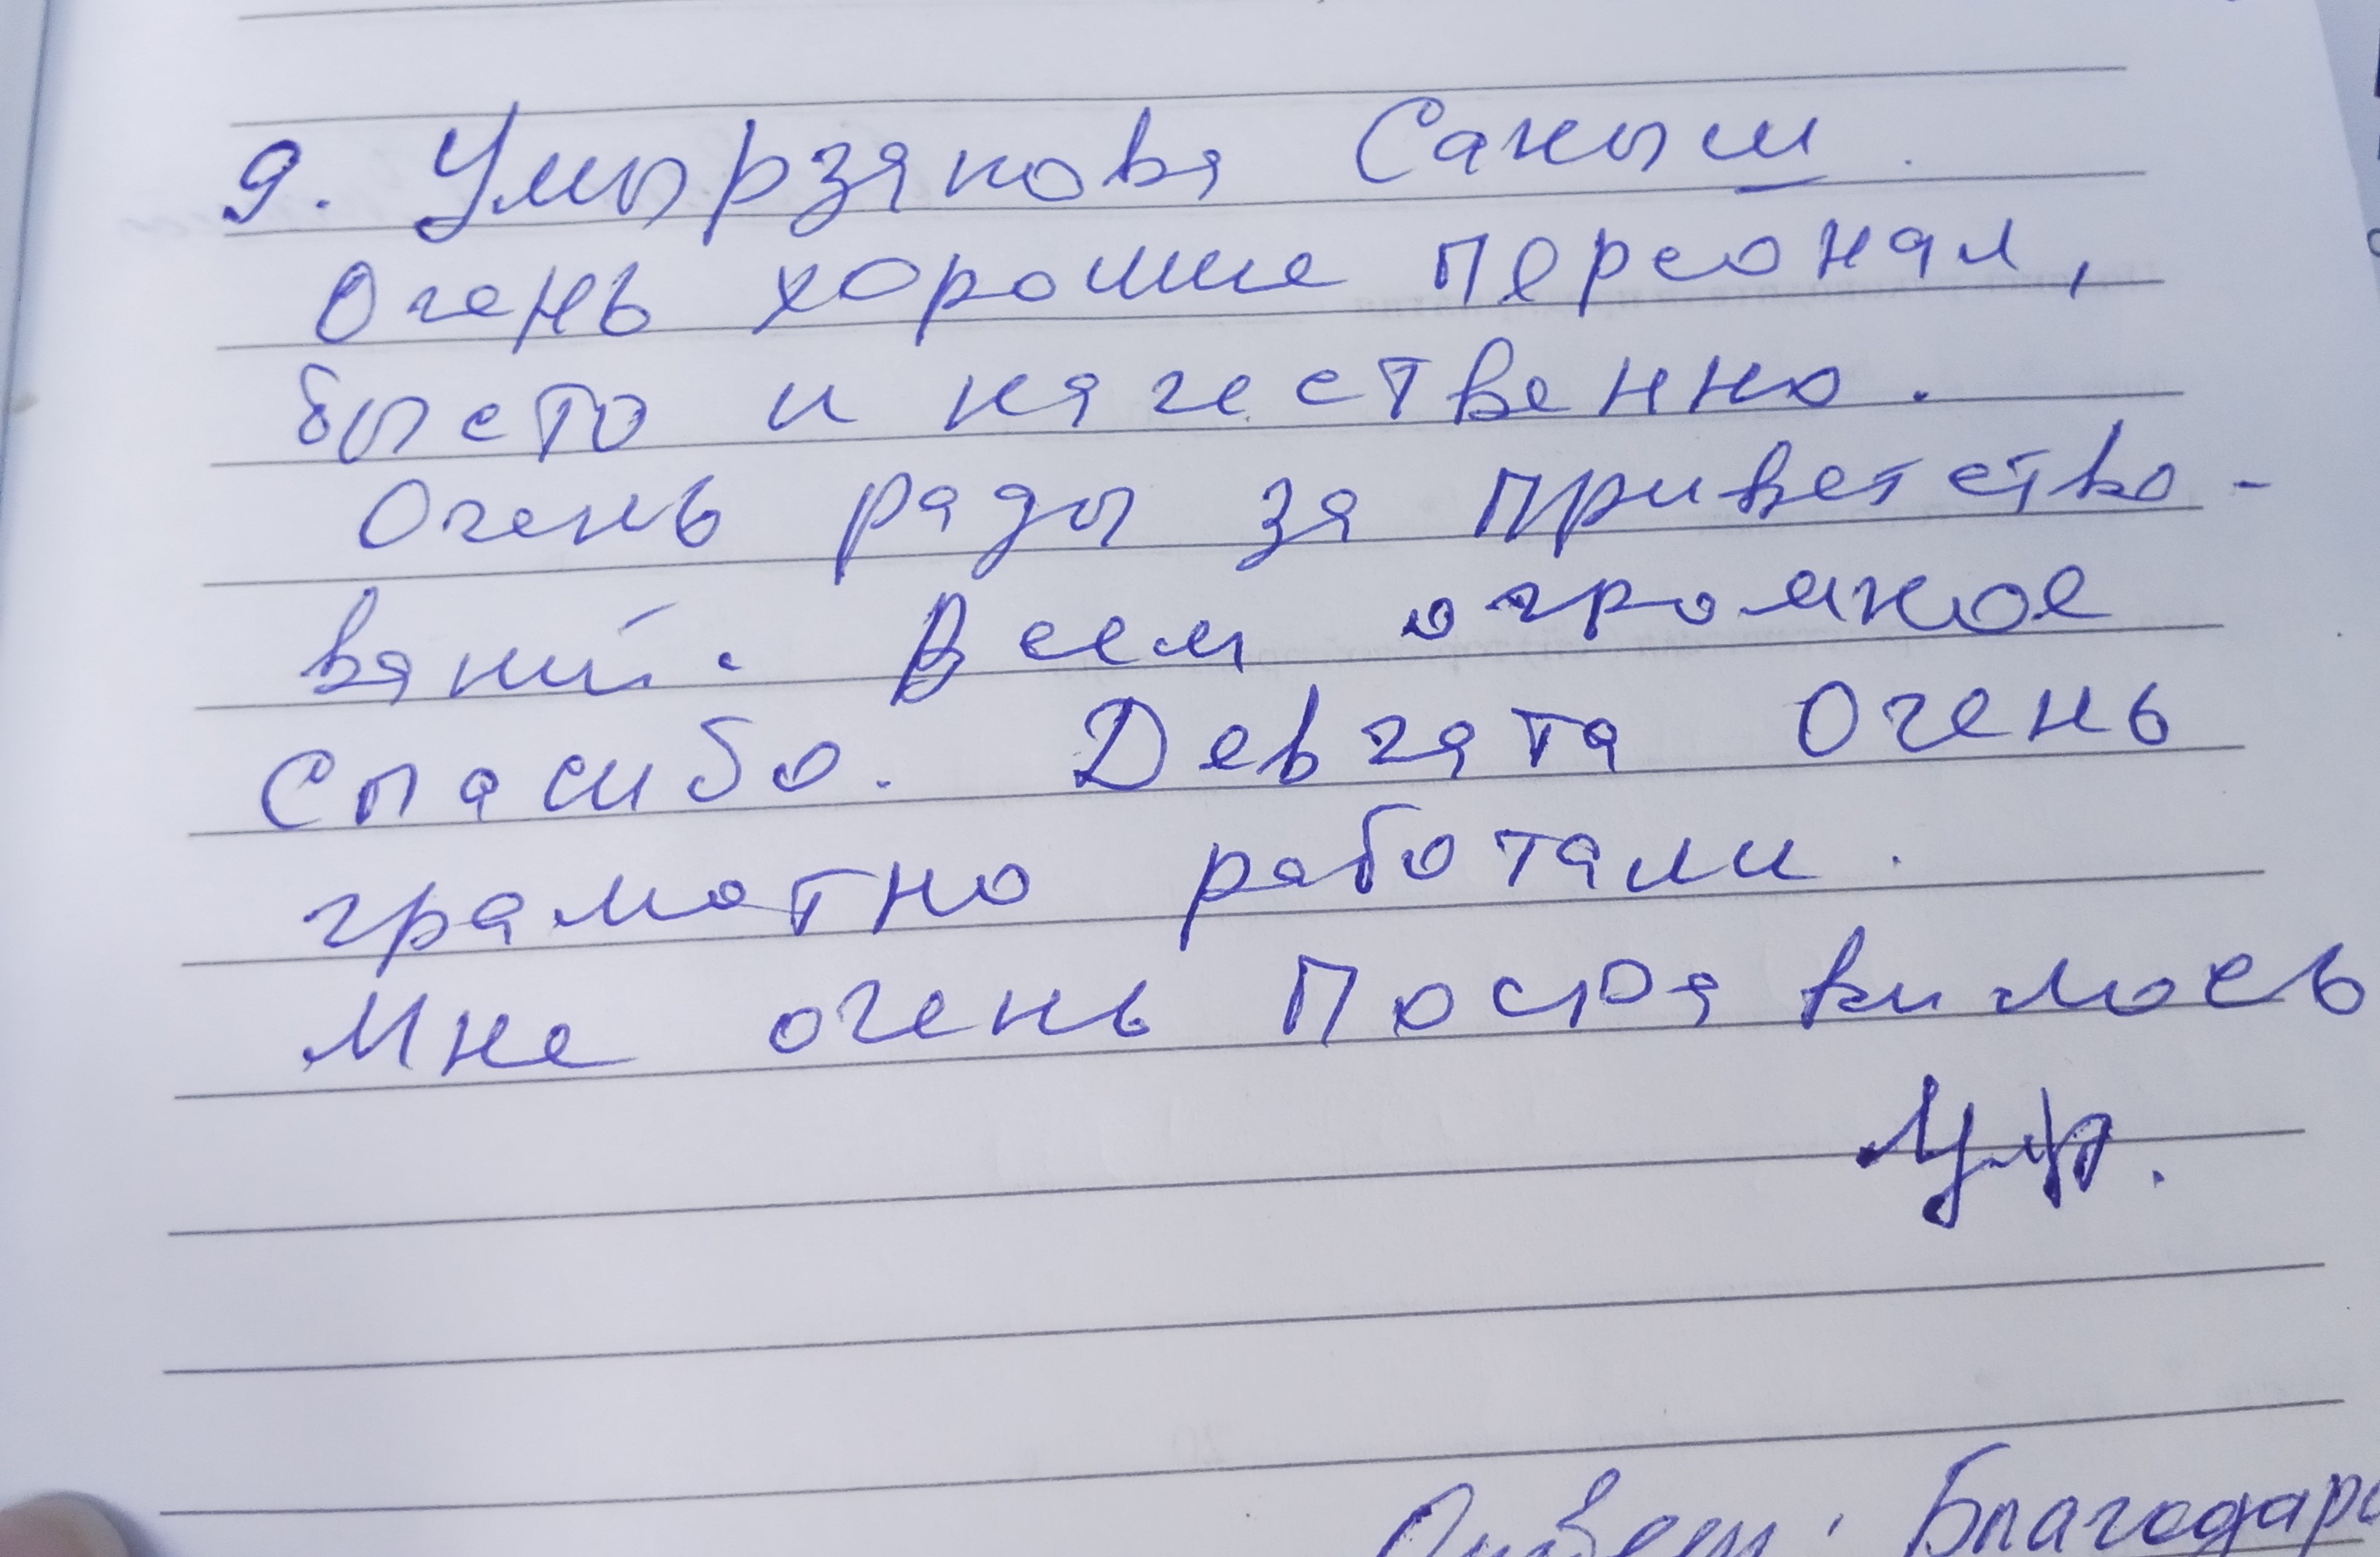 9. Умырзакова Саныш.
Очень хорошие персонал,
бысто и качественно.
Очень рады за приветство-
ваний. Всем огромное
спасибо. Девчята Очень
грамотно работали.
Мне очень Понравилось
Ответ: Благодар